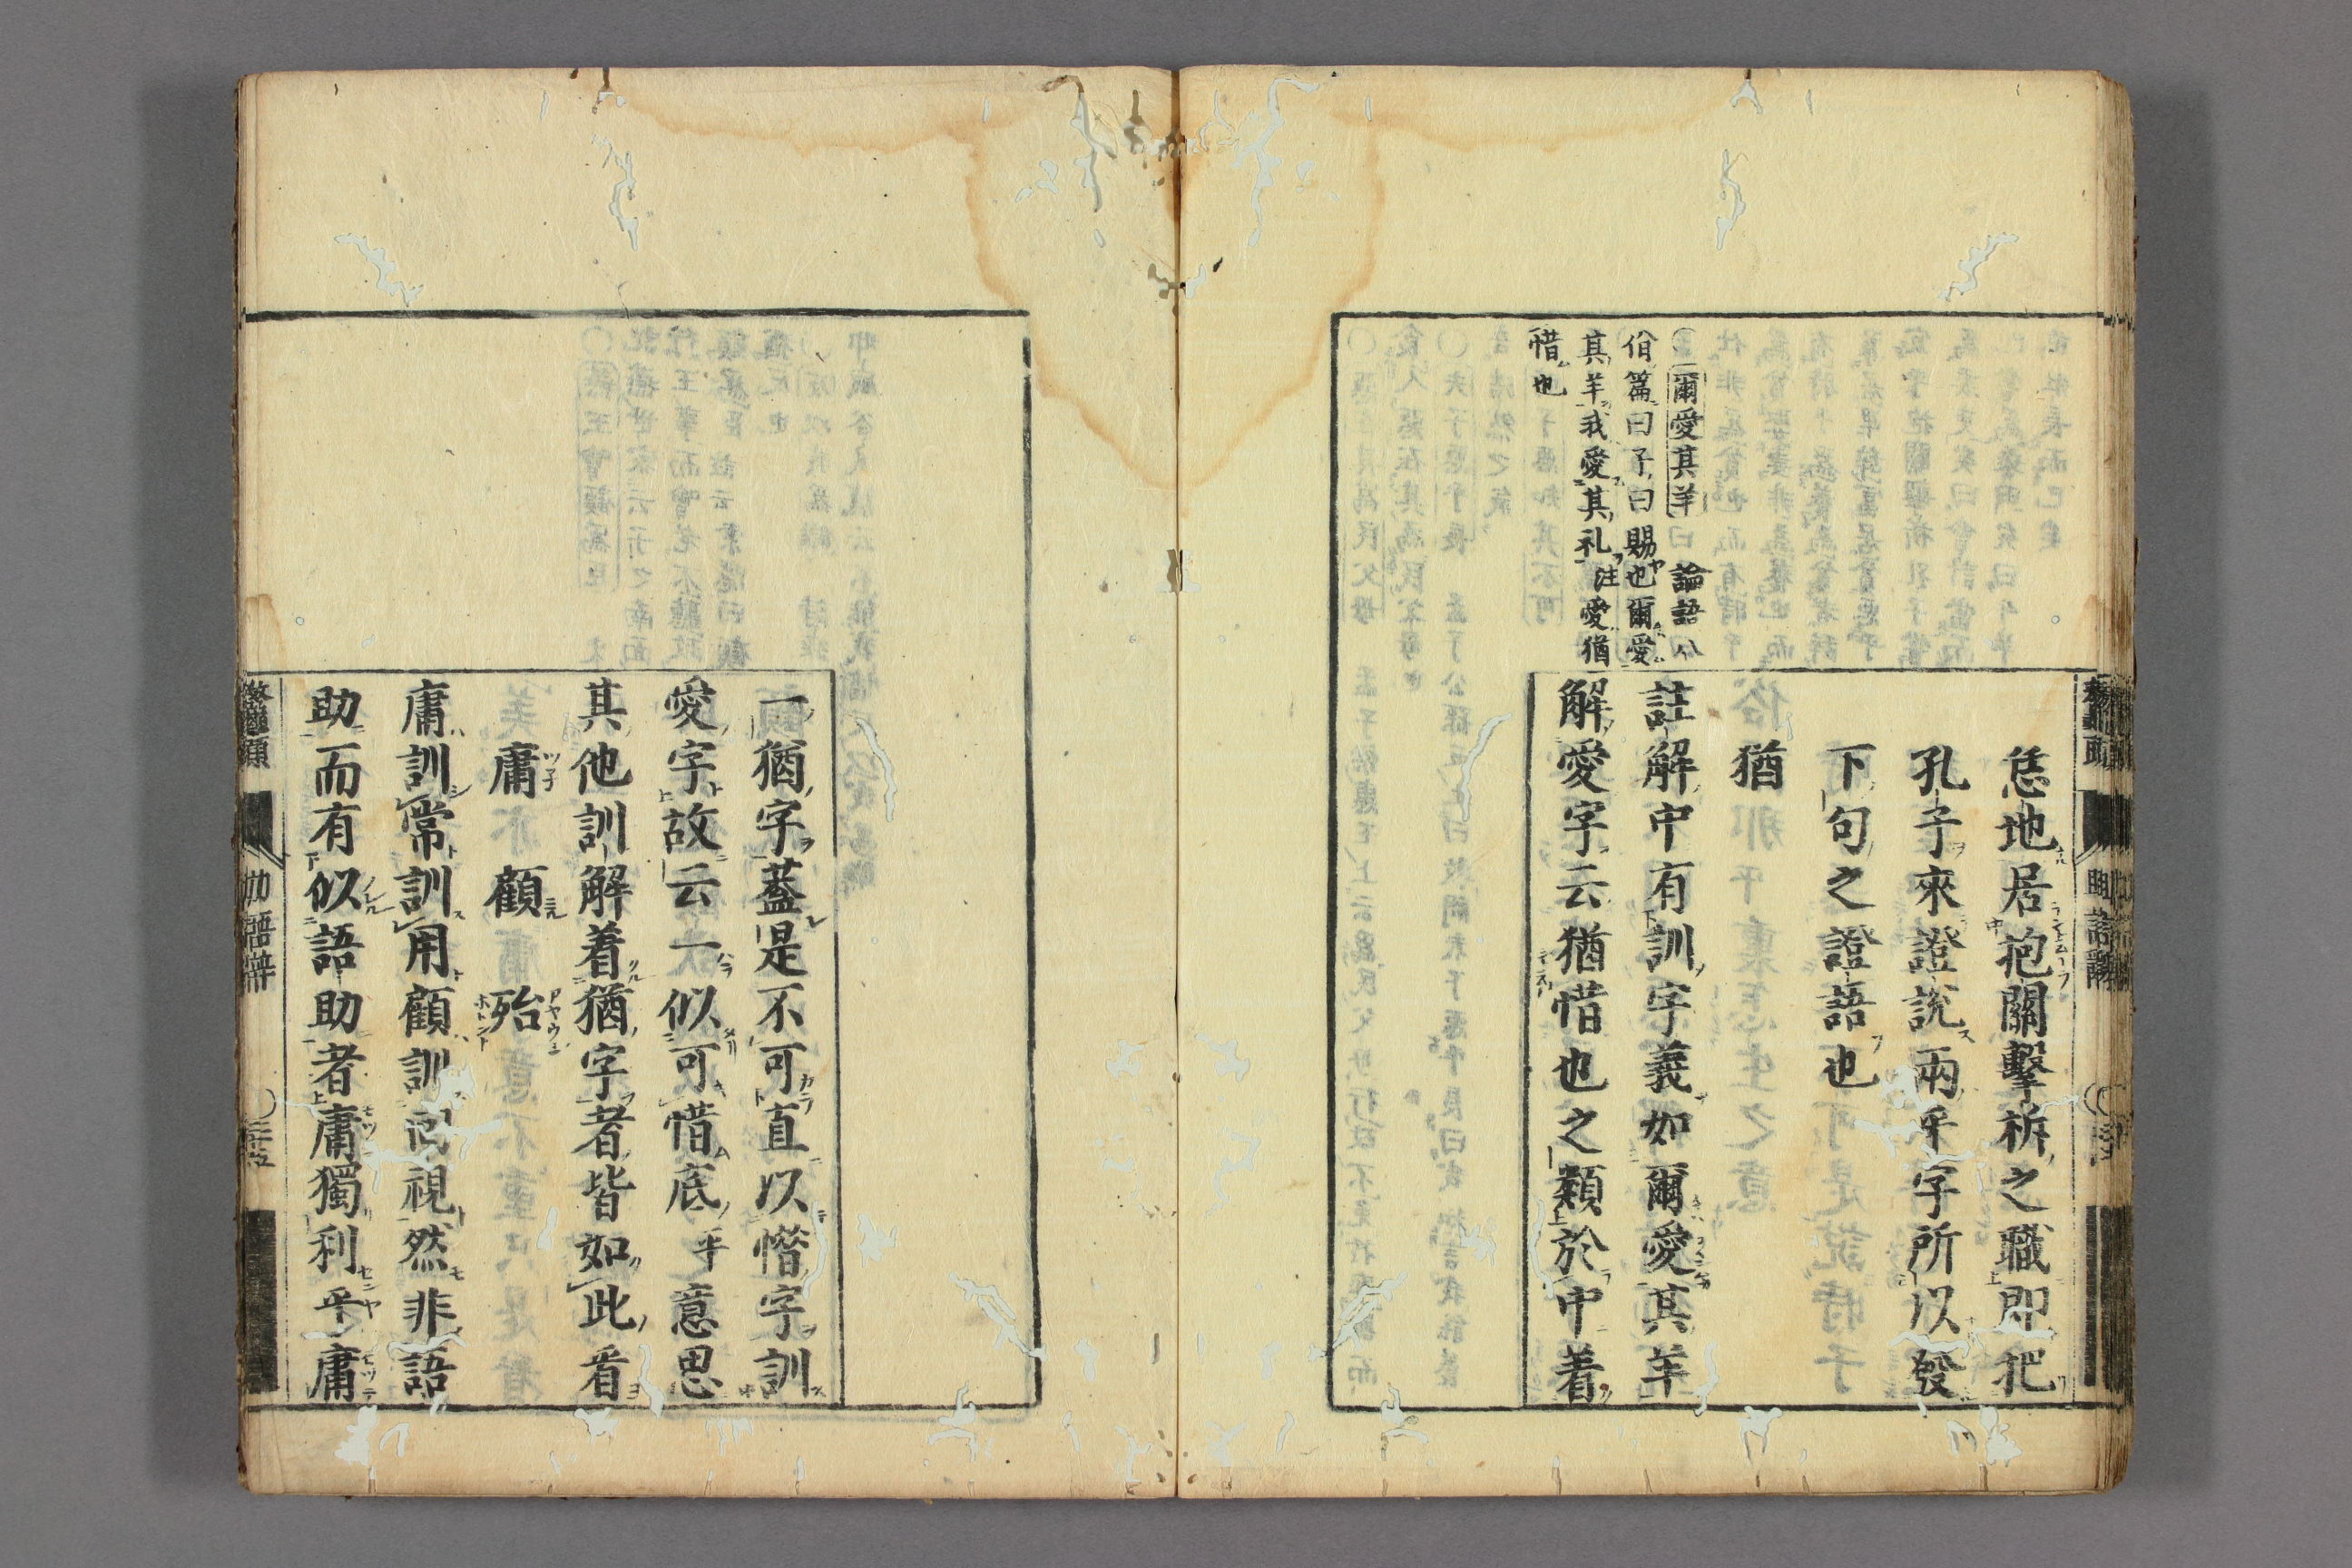 恁地居抱關擊柝之職即把
孔子來證說兩乎字所以發
下句之證語也
猶
註解中有訓字義如爾愛其羊
解愛字云猶惜也之類於中着
爾愛其羊 論語八
佾篇曰子曰賜也爾愛
其羊我愛其礼注愛猶
惜也
一猶字蓋是不可直以惜字訓
愛字故云一似可惜底乎意思
其他訓解着猶字者皆如此看
庸 顧 殆
庸訓常訓用顧訓回視然非語
助而有似語助者庸獨利乎庸
鼇頭 助語辭 三十五